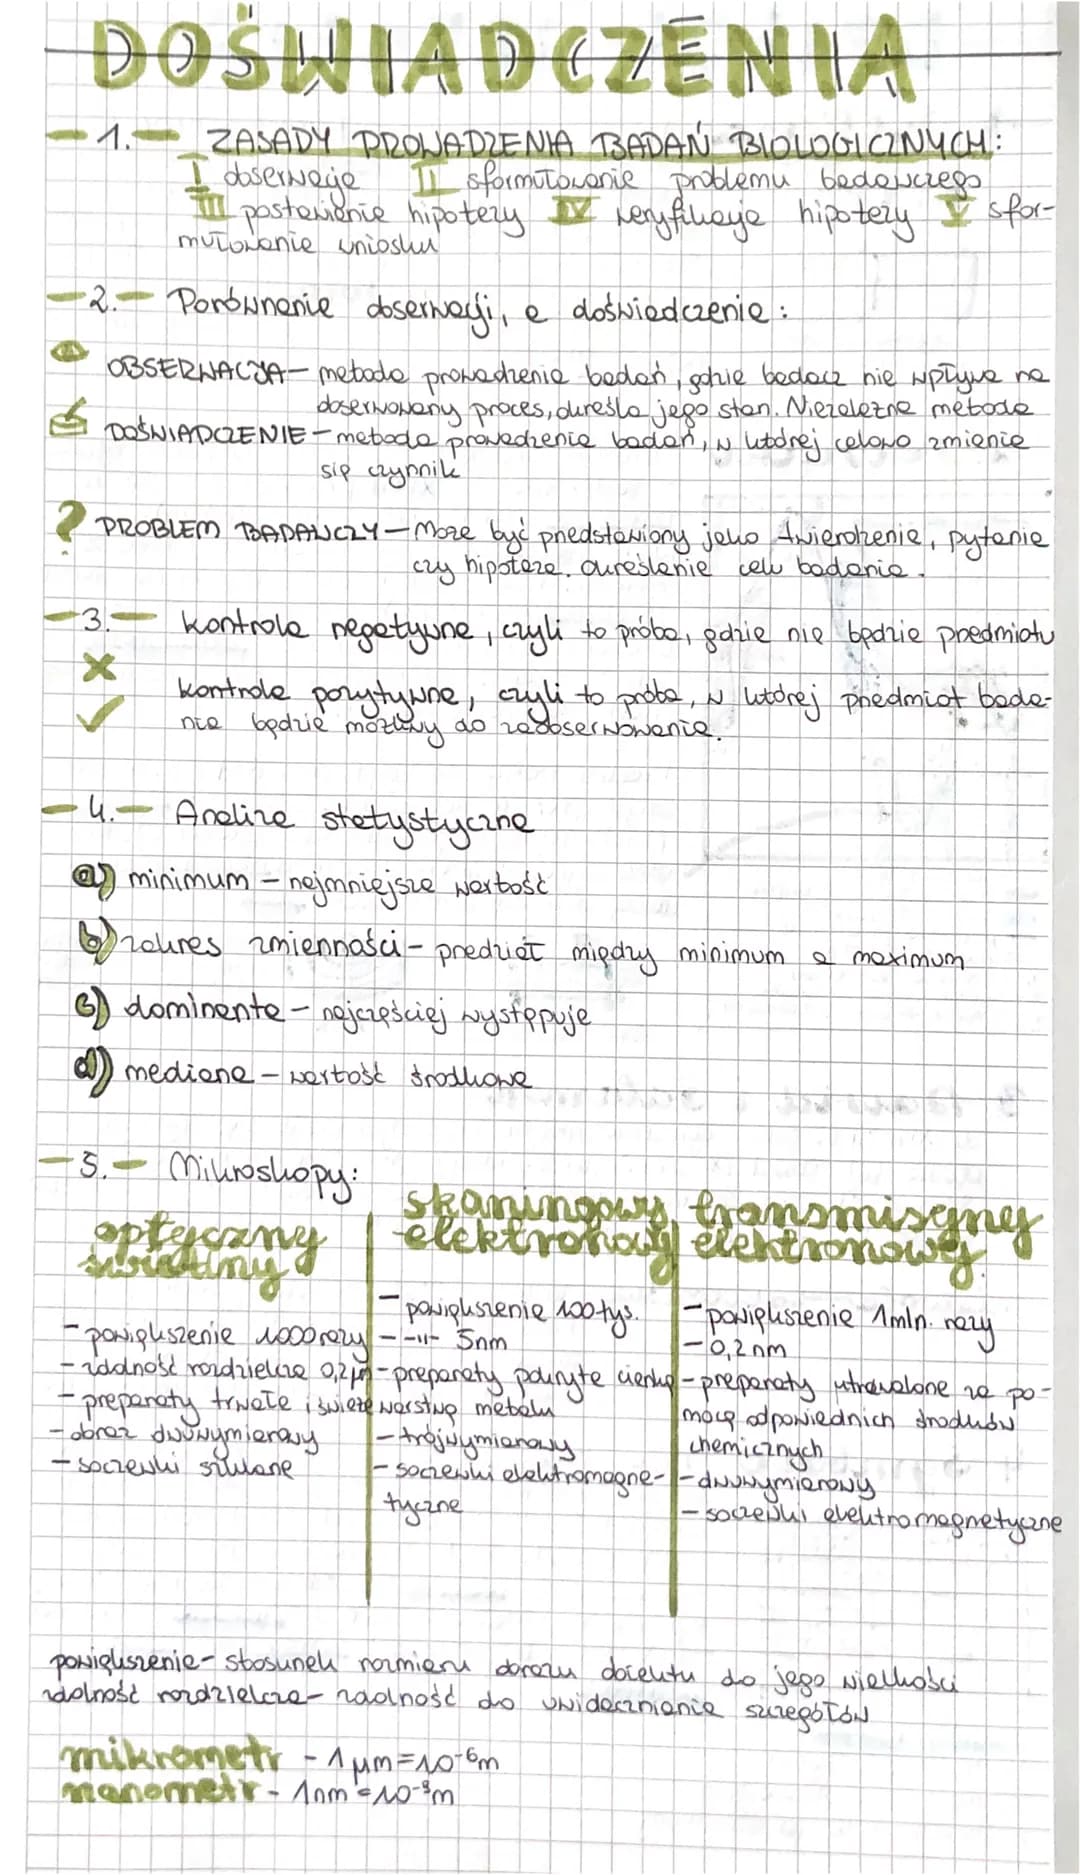 DOŚWIADCZENIA
-1.- ZASADY PROWADZENIA BADAŃ BIOLOGICZNYCH:
I obserwacja II sformułowanie problemu badawczego
III postawienie hipotezy IV weryfikacja hipotezy V sfor-
mułowanie wniosku
-2.- Porównanie obserwacji, a doświadczenie:
OBSERWACJA - metoda prowadzenia badań, gdzie badacz nie wpływa na
obserwowany proces, określa jego stan. Niezależna metoda
DOŚWIADCZENIE - metoda prowadzenia badań, w której celowo zmienia
się czynnik
? PROBLEM BADAWCZY - Może być przedstawiony jako twierdzenie, pytanie
czy hipoteza. Określenie celu badania.
-3.- kontrola negatywna, czyli to próba, gdzie nie będzie przedmiotu
kontrola pozytywna, czyli to próba, w której przedmiot bada-
nia będzie możliwy do zaobserwowania.
-4.- Analiza statystyczna
a) minimum - najmniejsza wartość
b) zakres zmienności - przedział między minimum a maximum
c) dominanta - najczęściej występuje
d) mediana - wartość środkowa
-5.- Mikroskopy:
optyczny
świetlny
- powiększenie 1000 razy
- zdolność rozdzielcza 0,2 µm
- preparaty trwałe i świeże
- obraz dwuwymiarowy
- soczewki szklane
skaningowy
elektronowy
- powiększenie 100 tys.
- -11- 5nm
- preparaty pokryte cienką
warstwą metalu
- trójwymiarowy
- soczewki elektromagne-
tyczne
transmisyjny
elektronowy
- powiększenie 1mln. razy
- 0,2 nm
- preparaty utrwalone za po-
mocą odpowiednich środków
chemicznych
- dwuwymiarowy
- soczewki elektromagnetyczne
powiększenie - stosunek rozmiaru obrazu obiektu do jego wielkości
zdolność rozdzielcza - zdolność do uwidaczniania szczegółów
mikrometr - 1 µm = 10⁻⁶m
manometr - 1nm = 10⁻⁹m